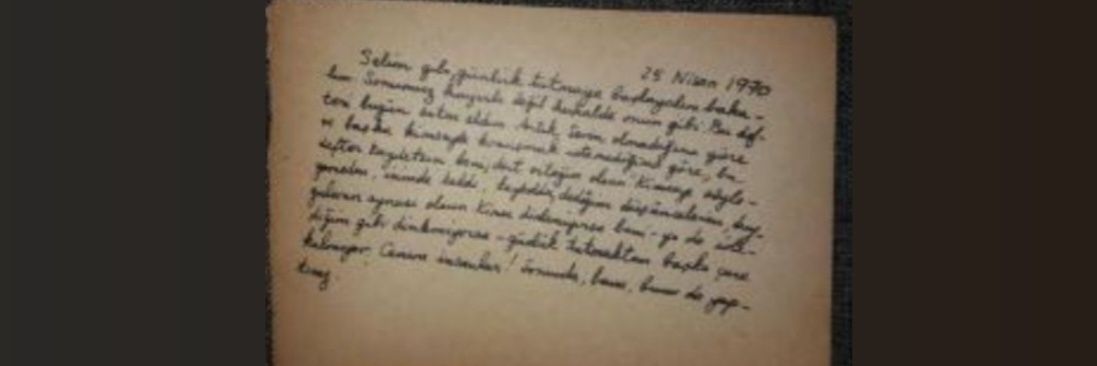 25 Nisan 1970
Selim gibi, günlük tutmaya başlayalım baka-
lım. Sonumuz hayırlı değil herhalde onun gibi. Bu def-
teri bugün satın aldım. Artık Sevin olmadığına göre
ve başka kimseyle konuşmak istemediğime göre, bu
defter kaydetsin beni; dert ortağım olsun. Kimseye söyle-
yemeden, içimde kaldı, kayboldu dediğim düşüncelerin, duy-
guların aynası olsun. Kimse dinlemiyorsa beni - ya da iste-
diğim gibi dinlemiyorsa - günlük tutmaktan başka çare
kalmıyor. Canım insanlar! Sonunda, bana, bunu da yap-
tınız.